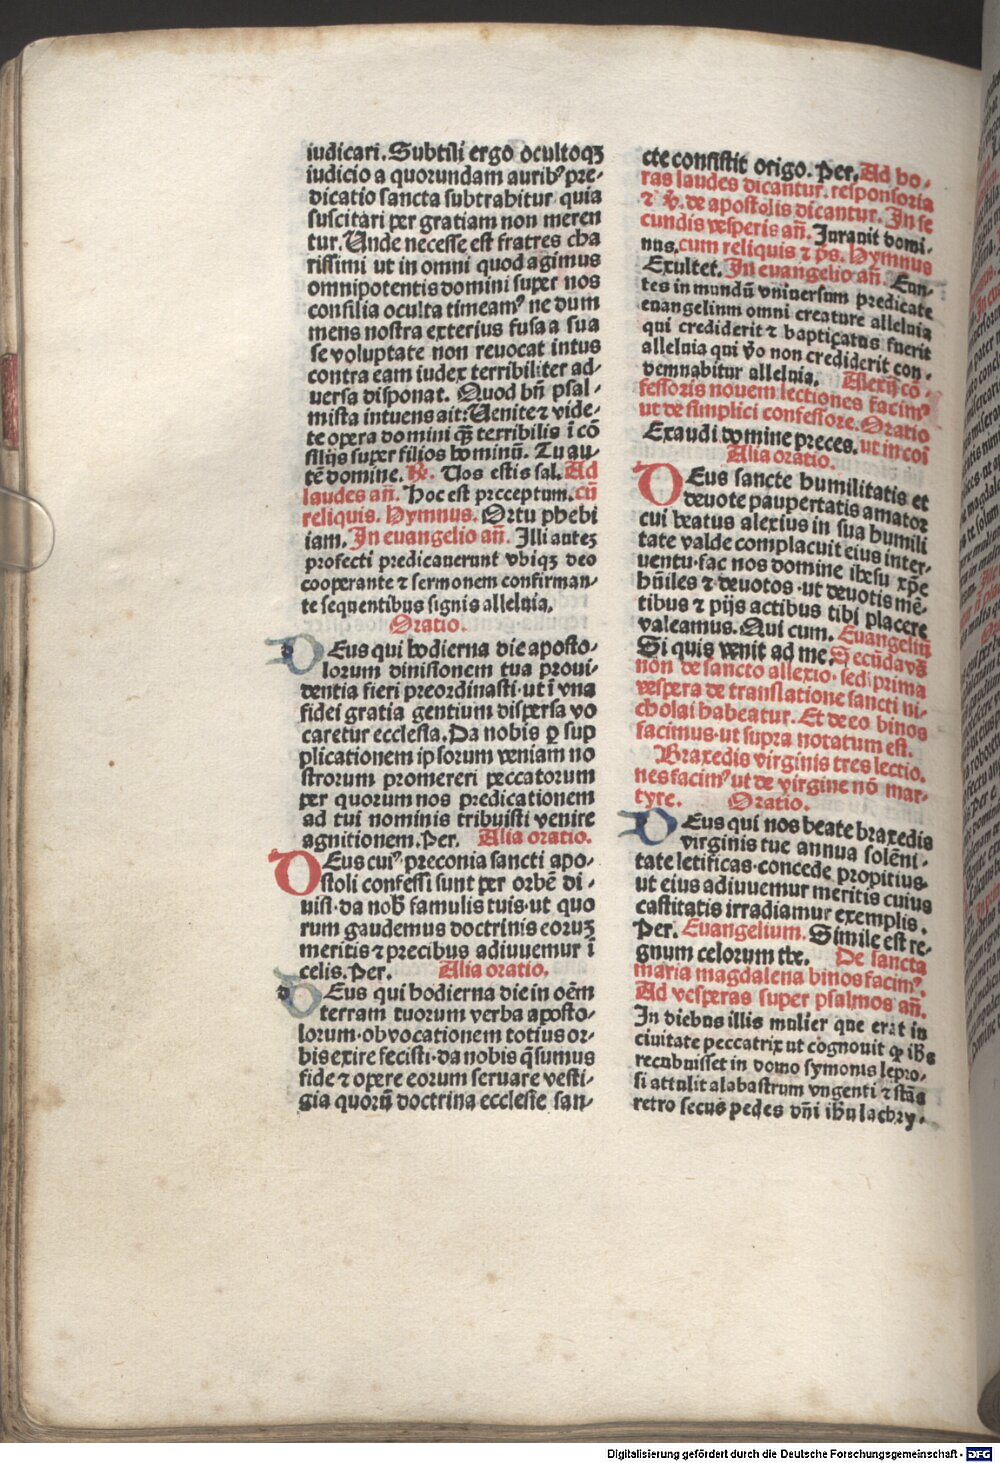 iudicari. Subtili ergo ocultoqꝫ
iudicio a quorundam auribꝰ pre-
dicatio sancta subtrahitur quia
suscitari per gratiam non meren
tur. Unde necesse est fratres cha
rissimi ut in omni quod agimus
omnipotentis domini super nos
consilia oculta timeamꝰ ne dum
mens nostra exterius fusa a sua
se voluptate non reuocat intus
contra eam iudex terribiliter ad-
uersa disponat. Quod bn̄ psal-
mista intuens ait: Uenite ⁊ vide-
te opera domini q̄ꝫ terribilis ī cō
silijs super filios hominū. Tu au-
tē domine. ℟. Uos estis sal. Ad
laudes an̄. Hoc est preceptum. cū
reliquis. Hymnus. Ortu phebi
iam. In euangelio an̄. Illi auteꝫ
profecti predicauerunt vbiqꝫ deo
cooperante ⁊ sermonem confirman-
te sequentibus signis alleluia.
Oratio.
DEus qui hodierna die aposto-
lorum diuisionem tua proui-
dentia fieri preordinasti·ut ī vna
fidei gratia gentium dispersa vo
caretur ecclesia. Da nobis ꝑ sup
plicationem ipsorum veniam no
strorum promereri peccatorum
per quorum nos predicationem
ad tui nominis tribuisti venire
agnitionem. Per. Alia oratio.
DEus cuiꝰ preconia sancti apo-
stoli confessi sunt per orbē di-
uisi·da nob̄ famulis tuis·ut quo
rum gaudemus doctrinis eoruꝫ
meritis ⁊ precibus adiuuemur ī
celis. Per. Alia oratio.
DEus qui hodierna die in oēm
terram tuorum verba aposto-
lorum·ob vocationem totius or-
bis exire fecisti·da nobis q̄sumus
fide ⁊ opere eorum seruare vesti-
gia quorū doctrina ecclesie san-
cte consistit origo. Per. Ad ho-
ras laudes dicantur. responsoria
⁊ v̄. de apostolis dicantur. In se
cundis vesperis an̄. Iurauit domi-
nus. cum reliquis ⁊ p̄s. Hymnus
Exultet. In euangelio an̄. Eun-
tes in mundū vniuersum predicate
euangelium omni creature alleluia
qui crediderit ⁊ baptiçatus fuerit
alleluia qui v̄o non crediderit con-
demnabitur alleluia. Alexij cō-
fessoris nouem lectiones facimꝰ
ut de simplici confessore. Oratio
Exaudi domine preces. ut in coī
Alia oratio.
DEus sancte humilitatis et
deuote paupertatis amator
cui beatus alexius in sua humili
tate valde complacuit eius inter-
uentu·fac nos domine ihesu xp̄e
hūiles ⁊ deuotos·ut deuotis mē-
tibus ⁊ pijs actibus tibi placere
valeamus. Qui cum. Euangeliū
Si quis venit ad me. Secūda v̄s
non de sancto allexio·sed prima
vespera de translatione sancti ni-
cholai habeatur. Et de eo binos
facimus·ut supra notatum est.
Braxedis virginis tres lectio.
nes facimꝰ ut de virgine nō mar-
tyre. Oratio.
DEus qui nos beate braxedis
virginis tue annua solēni-
tate letificas·concede propitius.
ut eius adiuuemur meritis cuius
castitatis irradiamur exemplis.
Per. Euangelium. Simile est re-
gnum celorum the. De sancta
maria magdalena binos facimꝰ.
Ad vesperas super psalmos an̄.
In diebus illis mulier que erat in
ciuitate peccatrix ut cognouit ꝙ ih̄s
recubuisset in domo symonis lepro-
si attulit alabastrum vngenti ⁊ stās
retro secus pedes dn̄i ih̄u lachry-
Digitalisierung gefördert durch die Deutsche Forschungsgemeinschaft - DFG